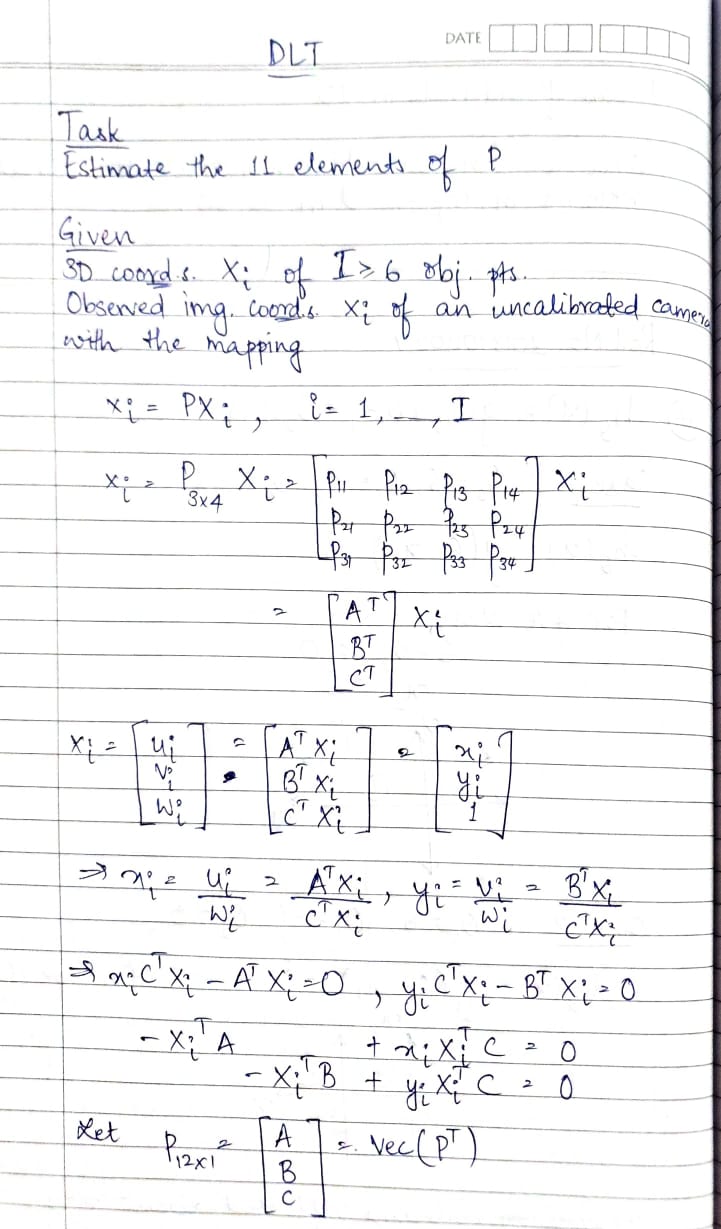 DATE
DLT
Task
Estimate the 11 elements of P
Given
3D coords. Xᵢ of I ≥ 6 obj. pts.
Observed img. coords. xᵢ of an uncalibrated camera
with the mapping
xᵢ = PXᵢ , i = 1, ..., I
xᵢ = P₃ₓ₄ Xᵢ = [p₁₁ p₁₂ p₁₃ p₁₄] Xᵢ
[p₂₁ p₂₂ p₂₃ p₂₄]
[p₃₁ p₃₂ p₃₃ p₃₄]
= [Aᵀ] Xᵢ
[Bᵀ]
[Cᵀ]
xᵢ = [uᵢ] = [Aᵀ Xᵢ] = [xᵢ]
[vᵢ] [Bᵀ Xᵢ] [yᵢ]
[wᵢ] [Cᵀ Xᵢ] [1]
⇒ xᵢ = uᵢ/wᵢ = AᵀXᵢ/CᵀXᵢ , yᵢ = vᵢ/wᵢ = BᵀXᵢ/CᵀXᵢ
⇒ xᵢCᵀXᵢ - Aᵀ Xᵢ = 0 , yᵢCᵀXᵢ - Bᵀ Xᵢ = 0
- Xᵢᵀ A + xᵢXᵢᵀ C = 0
- Xᵢᵀ B + yᵢXᵢᵀ C = 0
Let P₁₂ₓ₁ = [A] = Vec(Pᵀ)
[B]
[C]